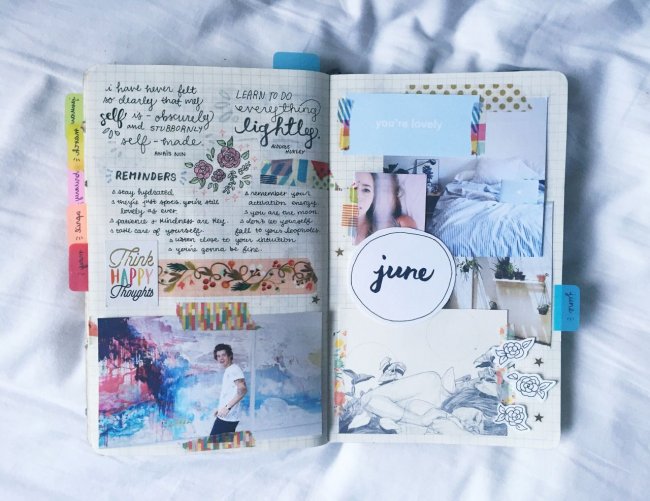 i have never felt
so clearly that my
self is - obscurely
and STUBBORNLY
self - made
ANAÏS NIN
LEARN TO DO
everything
lightly.
ALDOUS
HUXLEY
REMINDERS
stay hydrated.
they're just specs. you're still
lovely as ever
patience & kindness are key.
take care of yourself.
listen close to your intuition
you're gonna be fine.
remember your
activation energy.
you are the moon.
don't let yourself
fall to your loopholes.
Think
HAPPY
Thoughts
you're lovely
june
june